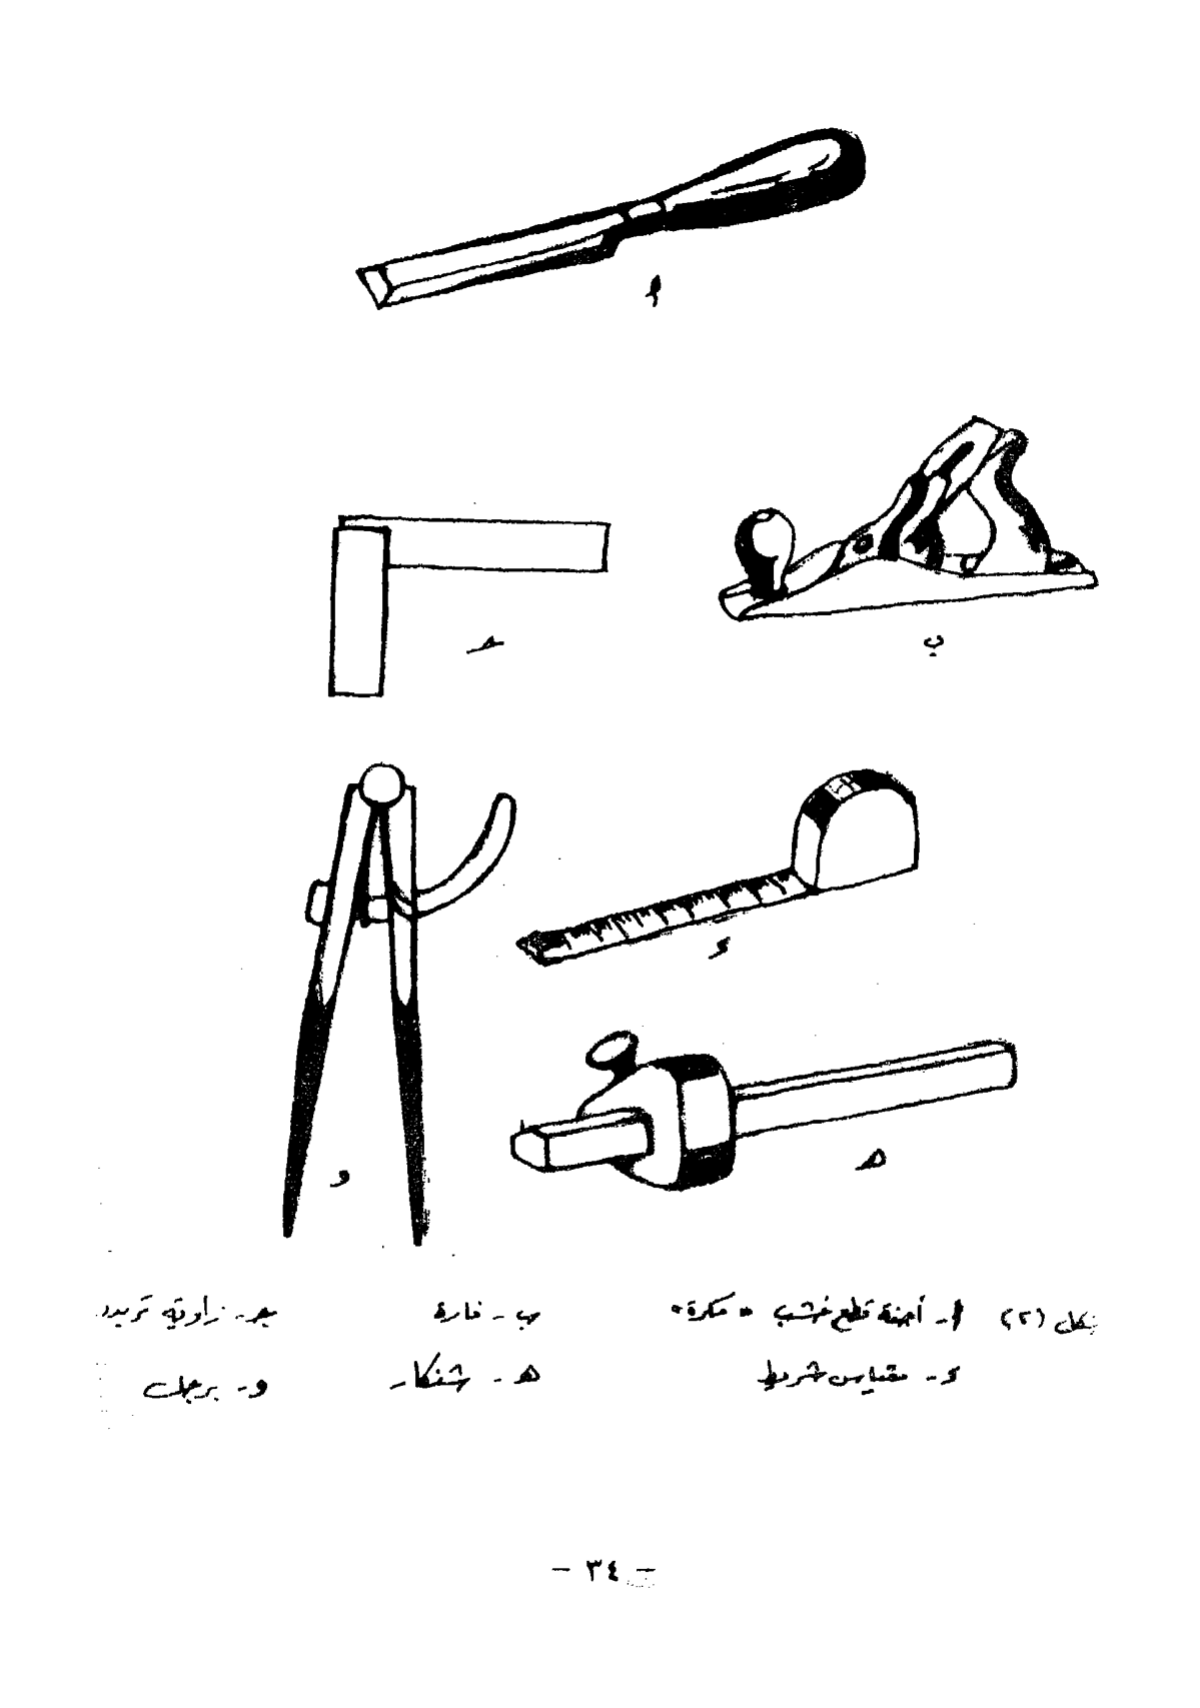 أ
ب
جـ
د
هـ
و
شكل (٢) أ- أجنة قطع خشب "مكرة" ب- فارة جـ- زاوية
د- مقياس شريط هـ- شنكار و- برجل
- ٣٤ -